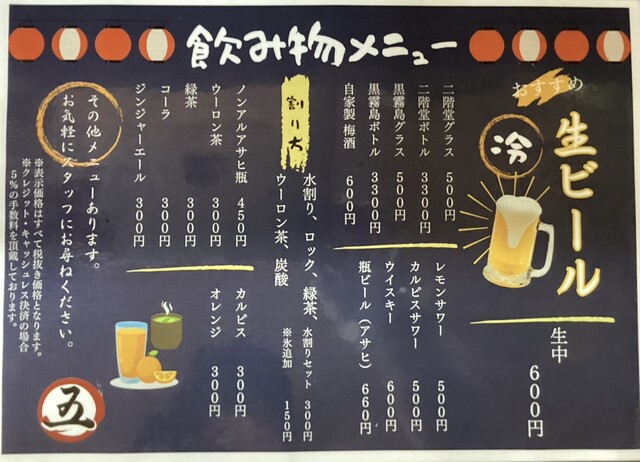 飲み物メニュー
おすすめ
冷
生ビール
生中 600円
二階堂グラス 500円
二階堂ボトル 3300円
黒霧島グラス 500円
黒霧島ボトル 3300円
自家製 梅酒 600円
レモンサワー 500円
カルピスサワー 500円
ウイスキー 600円
瓶ビール(アサヒ) 660円
割り方
水割り、ロック、緑茶、
ウーロン茶、炭酸
水割りセット 300円
※氷追加 150円
ノンアルアサヒ瓶 450円
ウーロン茶 300円
緑茶 300円
コーラ 300円
ジンジャーエール 300円
カルピス 300円
オレンジ 300円
その他メニューあります。
お気軽にスタッフにお尋ねください。
※表示価格はすべて税抜き価格となります。
※クレジット・キャッシュレス決済の場合
5%の手数料を頂戴しております。
五